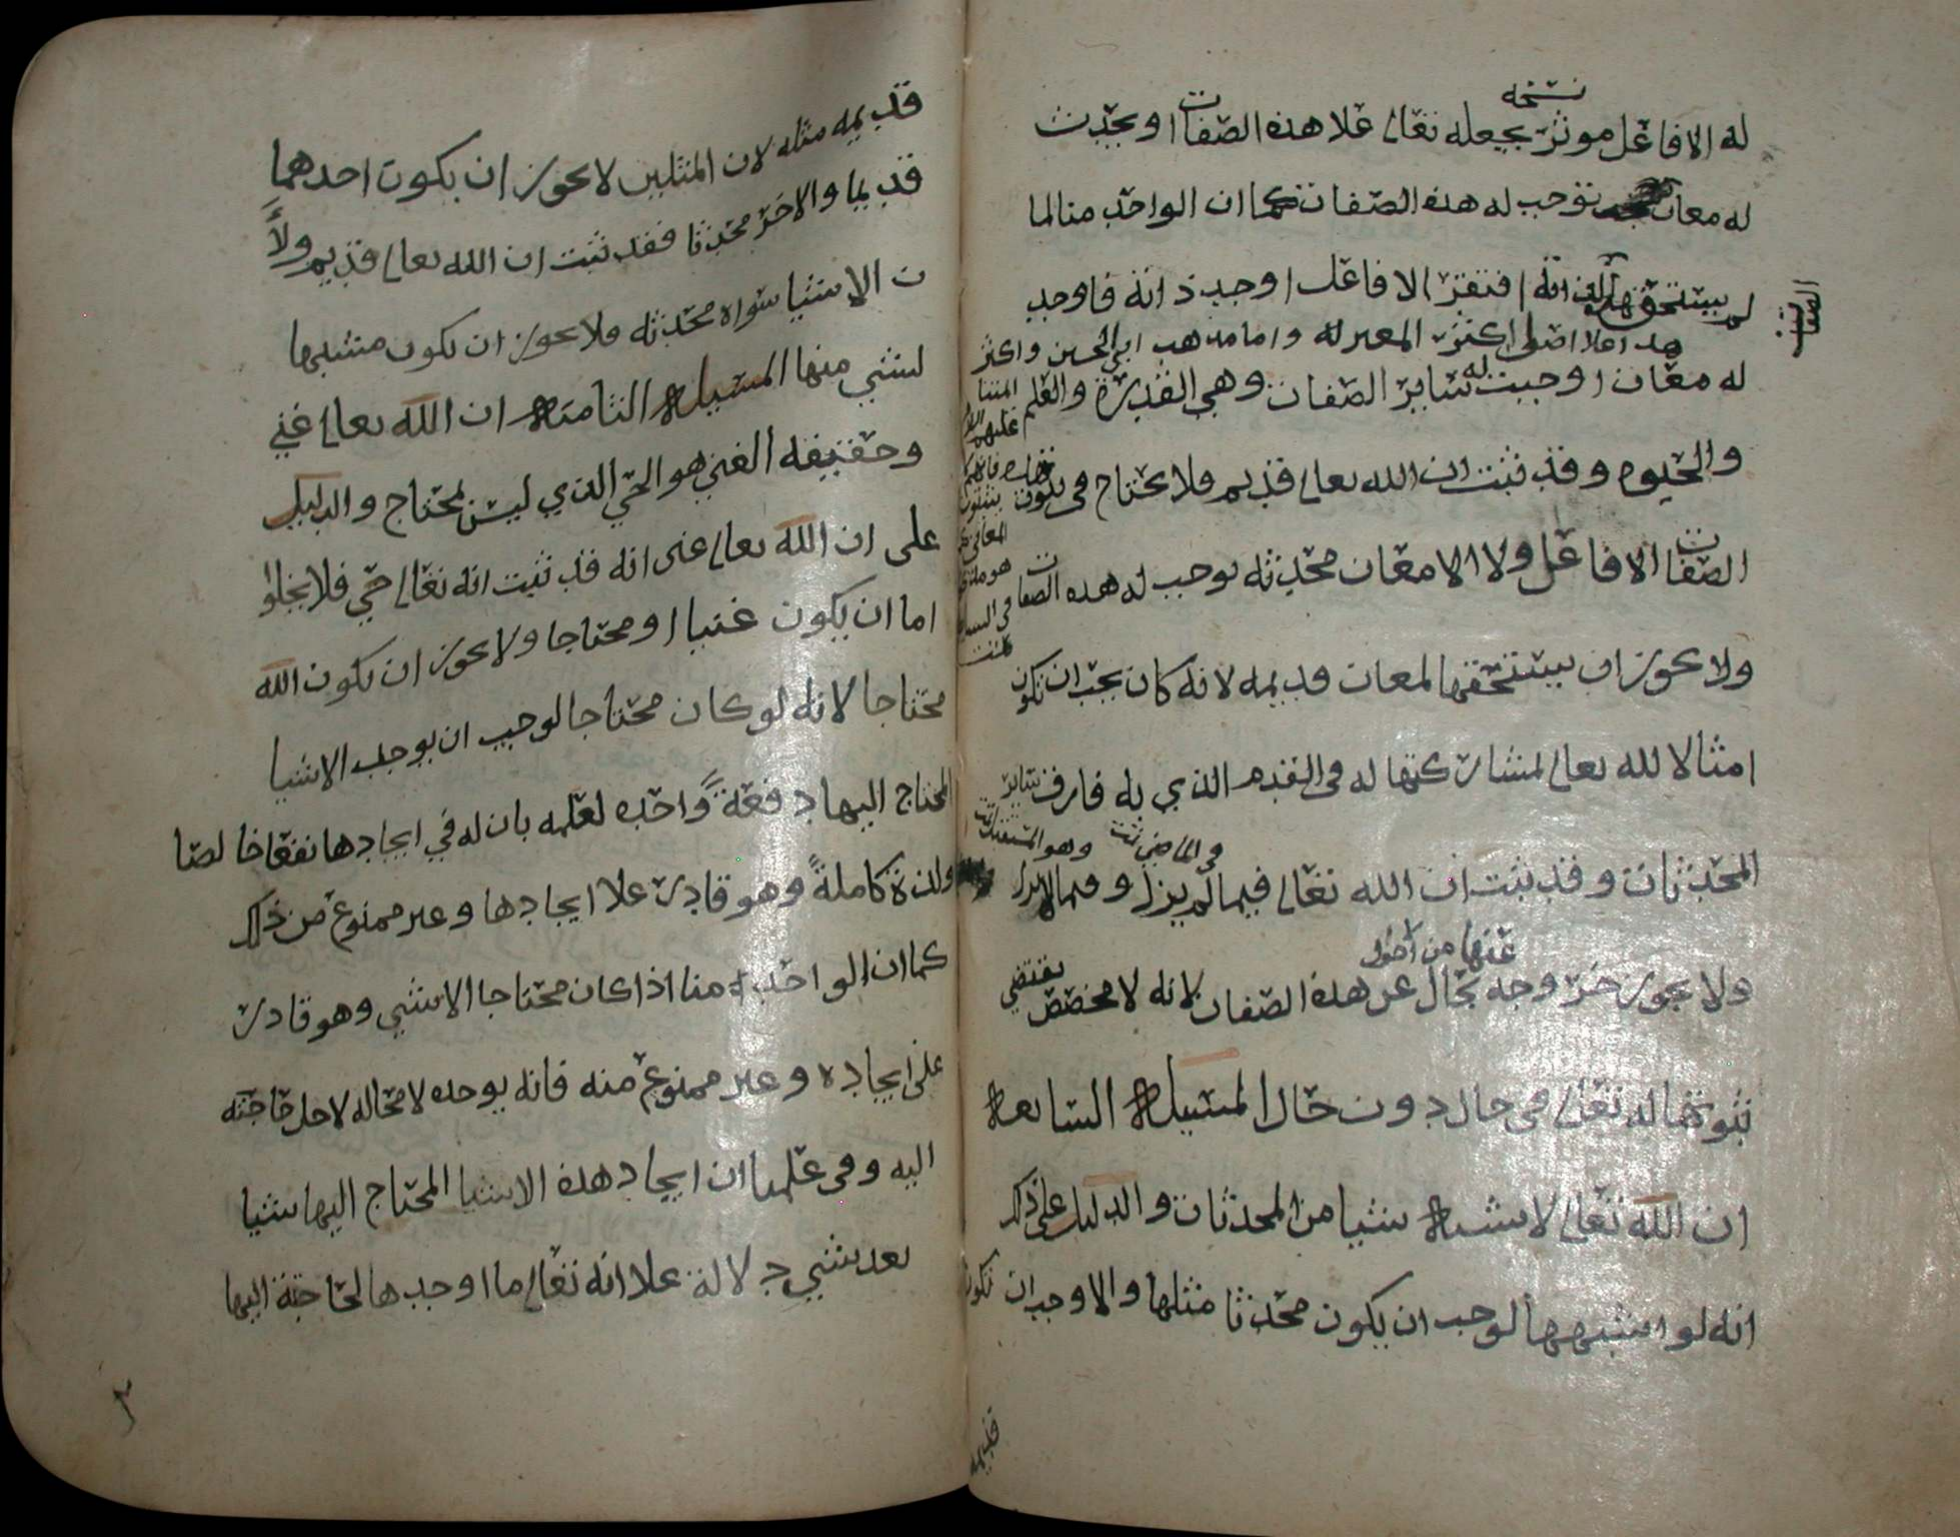 نسخه
له الا فاعل موثر يجعله تعالى علا هذه الصفات او يحدث
له معان توجب له هذه الصفات كما ان الواحد منا لما
لم يستحقها لذاته افتقر الا فاعل اوجد ذاته فاوجد
الصفات
هذا علا اصل اكثر المعتزله واما مذهب ابي الحسين واكثر
له معان اوجبت له ساير الصفات وهي القدرة والعلم
والحيوه وقد ثبت ان الله تعالى قديم فلا يحتاج في ثبوت
الصفات الا فاعل ولا الا معان محدثه توجب له هذه الصفات
ولا يجوز ان يستحقها لمعان قديمه لانه كان يجب ان تكون
امثالا لله تعالى لمشاركتها له في القدم الذي به فارق ساير
في الماضي تمت وهو المستقبل تمت
المحدثات وقد ثبت ان الله تعالى فيما لم يزل وفيما لا يزال
عنها من احول
ولا يجوز خروجه بحال عن هذه الصفات لانه لا مخصص يقتضي
ثبوتها له تعالى في حال دون حال المسيلة السابعة
ان الله تعالى لا يشبه شيا من المحدثات والدليل على ذلك
انه لو اشبهها لوجب ان يكون محدثا مثلها والا وجب ان تكون
قديمه
قديمه مثله لان المثلين لا يجوز ان يكون احدهما
قديما والاخر محدثا فقد ثبت ان الله تعالى قديم ولأ
ن الاشيا سواه محدثه ولا يجوز ان يكون مشبها
لشي منها المسيلة الثامنة ان الله تعالى غني
وحقيقه الغني هو الحي الذي ليس بمحتاج والدليل
على ان الله تعالى غنى انه قد ثبت انه تعالى حي فلا يخلوا
اما ان يكون غنيا او محتاجا ولا يجوز ان يكون الله
محتاجا لانه لو كان محتاجا لوجب ان يوجد الاشيا
المحتاج اليها دفعةً واحده لعلمه بان له في ايجادها نفعا خالصا
ولذة كاملةً وهو قادر علا ايجادها وغير ممنوع من ذلك
كما ان الواحد منا اذا كان محتاجا الا شي وهو قادر
على ايجاده وغير ممنوع منه فانه يوجده لا محاله لاجل حاجته
اليه وفي علمنا ان ايجاد هذه الاشيا المحتاج اليها شيا
بعد شي دلالة علا انه تعالى ما اوجدها لحاجته اليها